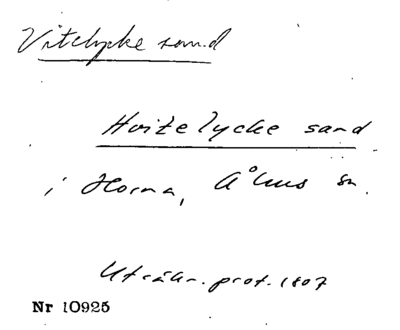 Vitelycke sand
Hvitelycke sand
i Horna, Åhus sn.
Uträkn. prot. 1807
Nr 10925